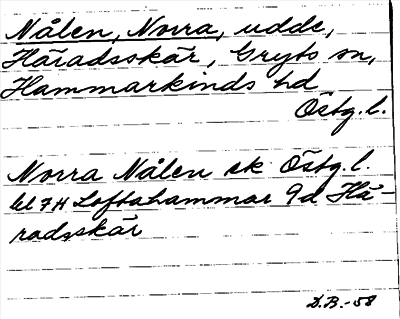 Nålen, Norra, udde,
Häradsskär, Gryts sn,
Hammarkinds hd
Östg. l.
Norra Nålen ek Östg. l.
bl 7H Loftahammar 9d Hä-
radsskär
D.B.-58